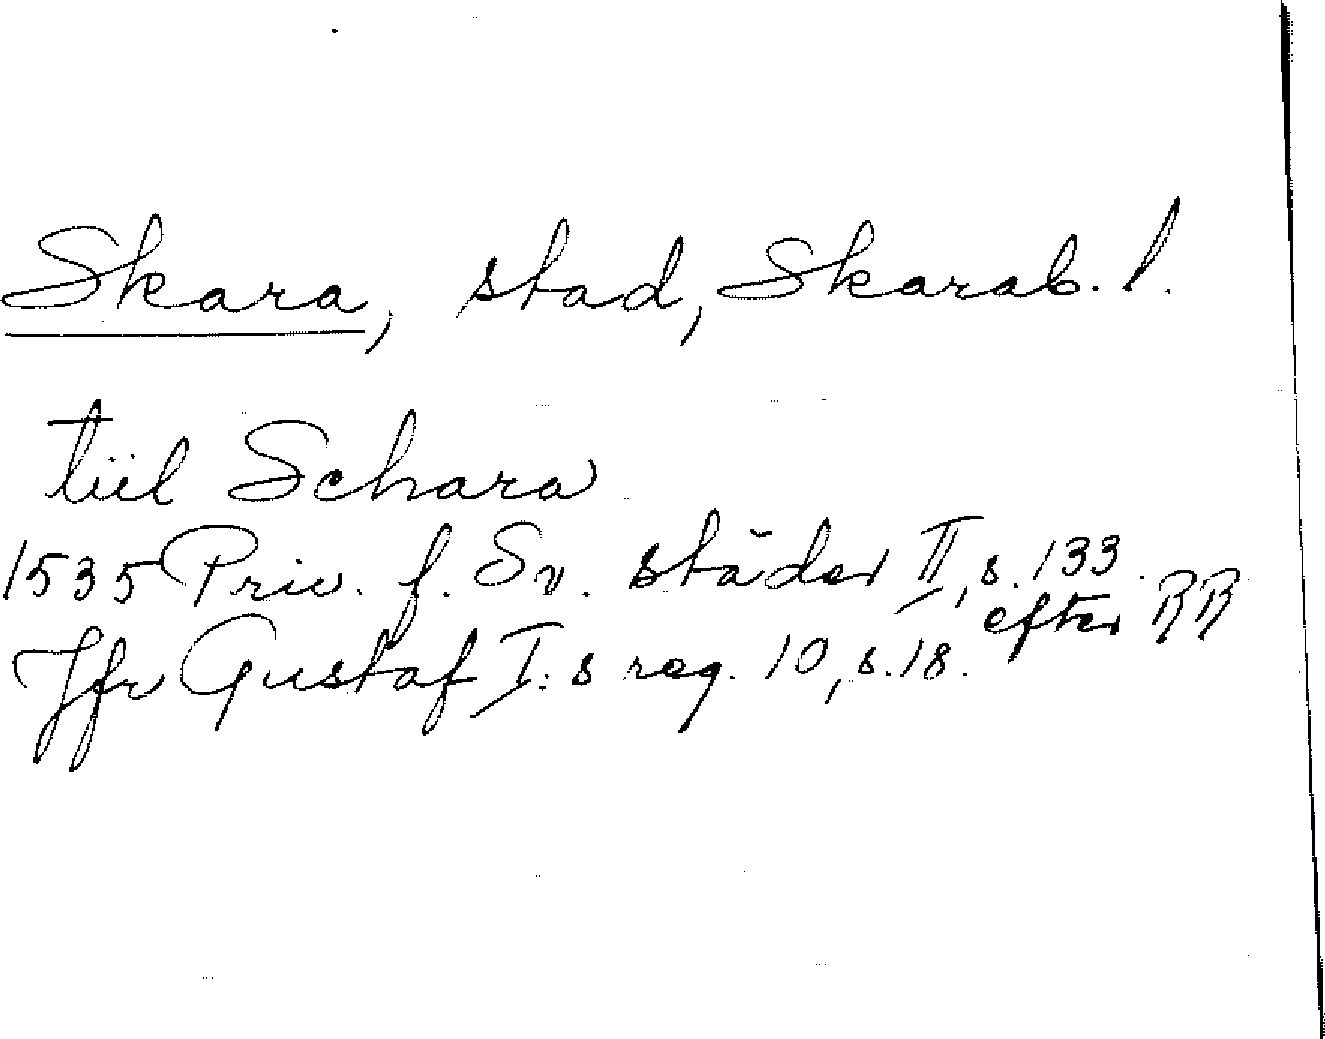 Skara, stad, Skarab. l.
tiil Schara
1535 Priv. f. Sv. städer II, s. 133
efter RR
Jfr Gustaf I:s reg. 10, s. 18.